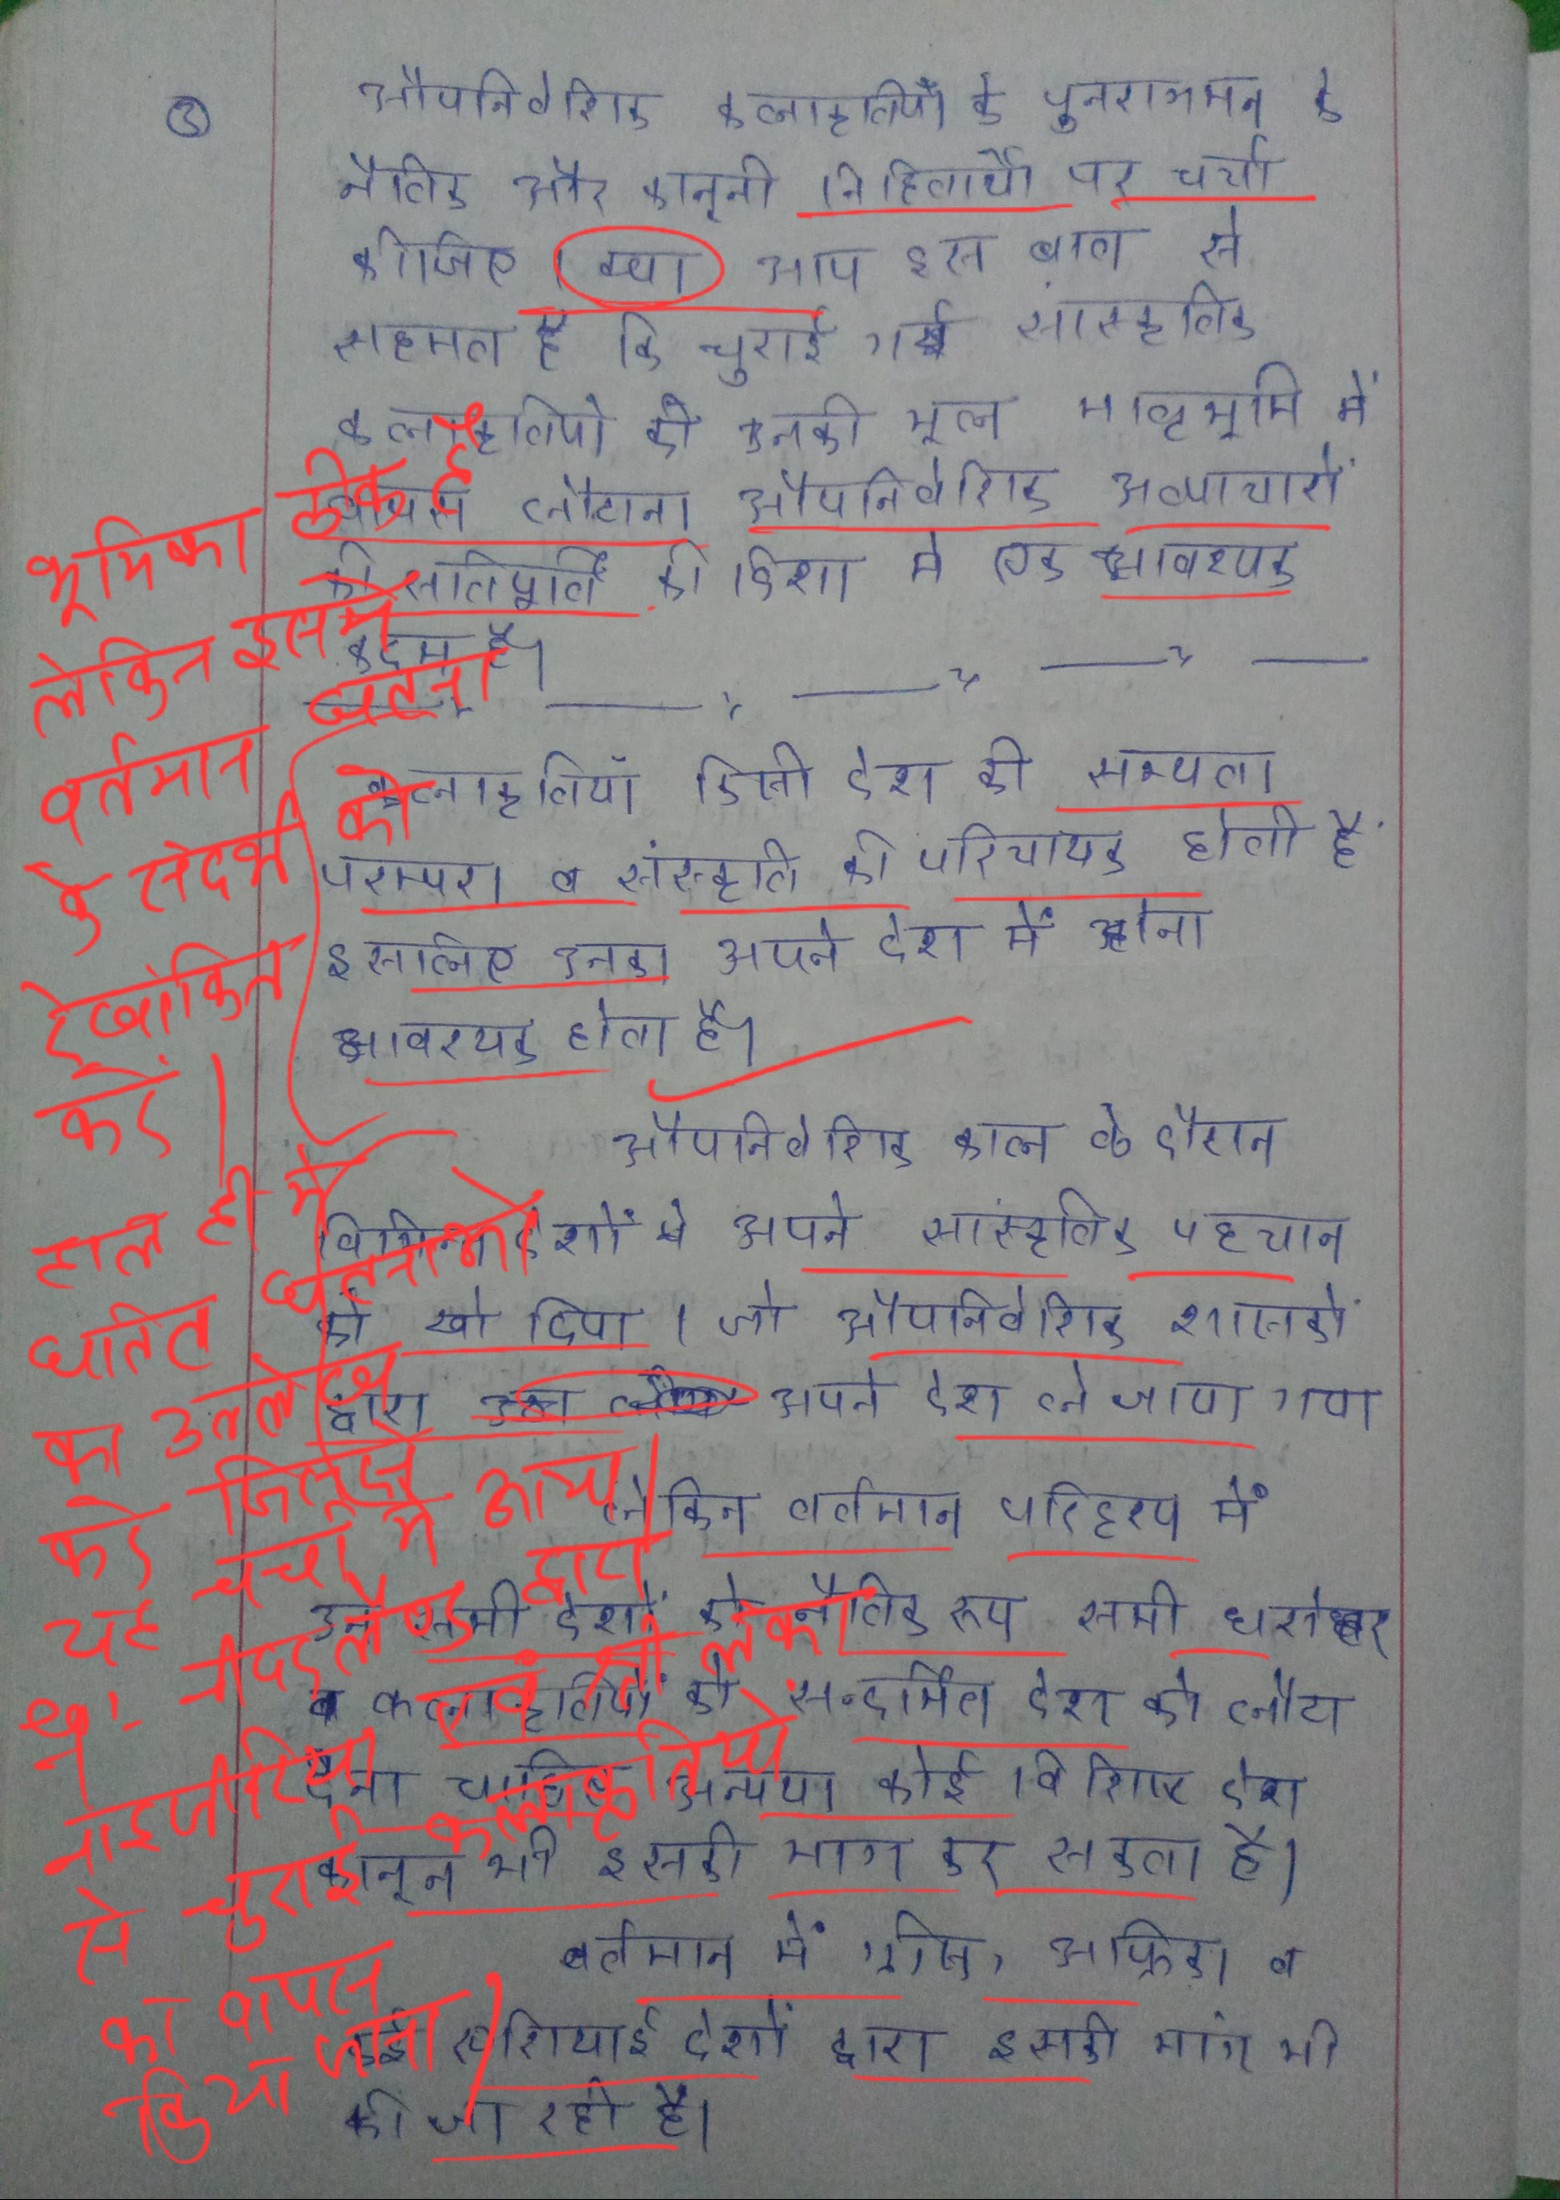 ③
औपनिवेशिक कलाकृतियों के पुनरागमन के
नैतिक और कानूनी निहितार्थों पर चर्चा
कीजिए। क्या आप इस बात से
सहमत हैं कि चुराई गई सांस्कृतिक
कलाकृतियो को उनकी मूल मातृभूमि में
वापस लौटाना औपनिवेशिक अत्याचारों
की क्षतिपूर्ति की दिशा मे एक आवश्यक
कदम है।
कलाकृतियाँ किसी देश की सभ्यता
परम्परा व संस्कृति की परिचायक होती हैं
इसलिए उनका अपने देश में होना
आवश्यक होता है।
औपनिवेशिक काल के दौरान
विभिन्न देशों ने अपने सांस्कृतिक पहचान
को खो दिया। जो औपनिवेशिक शासकों
द्वारा अपने देश ले जाया गया
लेकिन वर्तमान परिदृश्य में
उन सभी देशों को नैतिक रूप सभी धरोहर
व कलाकृतियों को सन्दर्भित देश को लौटा
देना चाहिए अन्यथा कोई विशिष्ट देश
कानून भी इसकी माग कर सकता है।
वर्तमान में ग्रीस, अफ्रिका व
कई एशियाई देशों द्वारा इसकी मांग भी
की जा रही है।
भूमिका ठीक है
लेकिन इसमे
वर्तमान घटना
के संदर्भ को
रेखांकित
करें।
हाल ही में
घटित घटनाओं
का उल्लेख
करे जिससे
यह चर्चा में आया।
था नीदरलैण्ड द्वारा
नाइजीरिया एवं श्री लंका
से चुराई कलाकृतियो
का वापस
किया जाना।